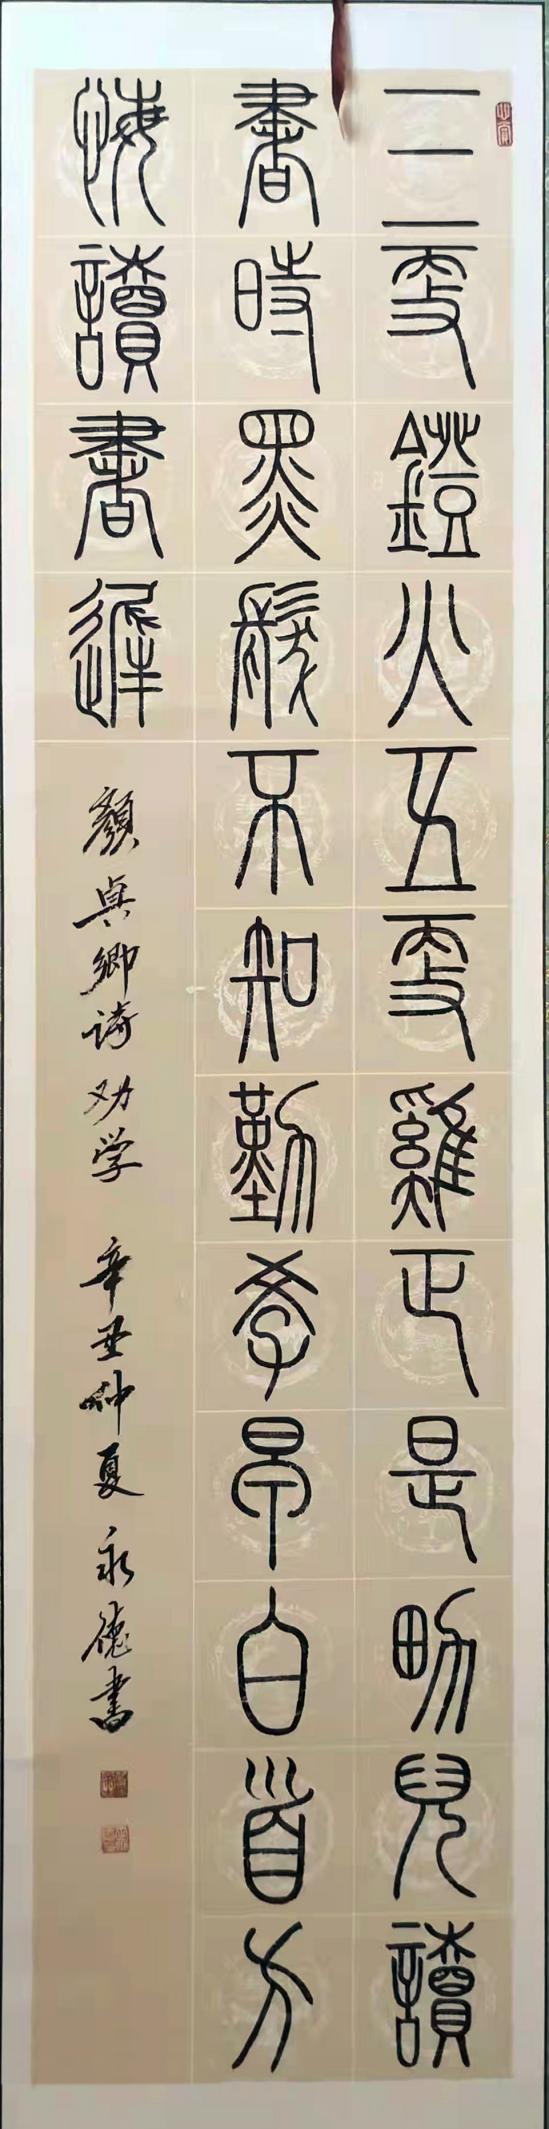 三更鐙火五更雞正是男兒讀
書時黑髮不知勤學早白首方
悔讀書遲
顏真卿诗劝学 辛丑仲夏 永德書